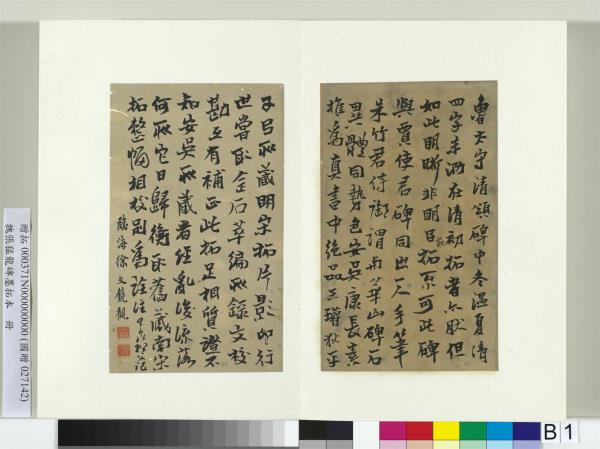 魯夫守清頌碑中冬温夏清
四字未泐在清初拓者亦肰但
如此明晰非明昌拓不可此碑
與賈使君碑同出一人手筆
朱竹君侍御謂与華山碑石
異體同勢包安吳康長素
推爲真書中絶品王瓘
子官所藏明宋拓片影印行
世嘗取金石萃編所録文校
勘互有補正此拓足相質證不
知安吳所藏者經亂後流落
何所它日歸衡取舊藏南宋
拓整幅相校別爲
臨海徐文鏡觀
贈拓 000371N000000000 (國贈 027142)
魏張猛龍碑墨拓本 冊
B 1